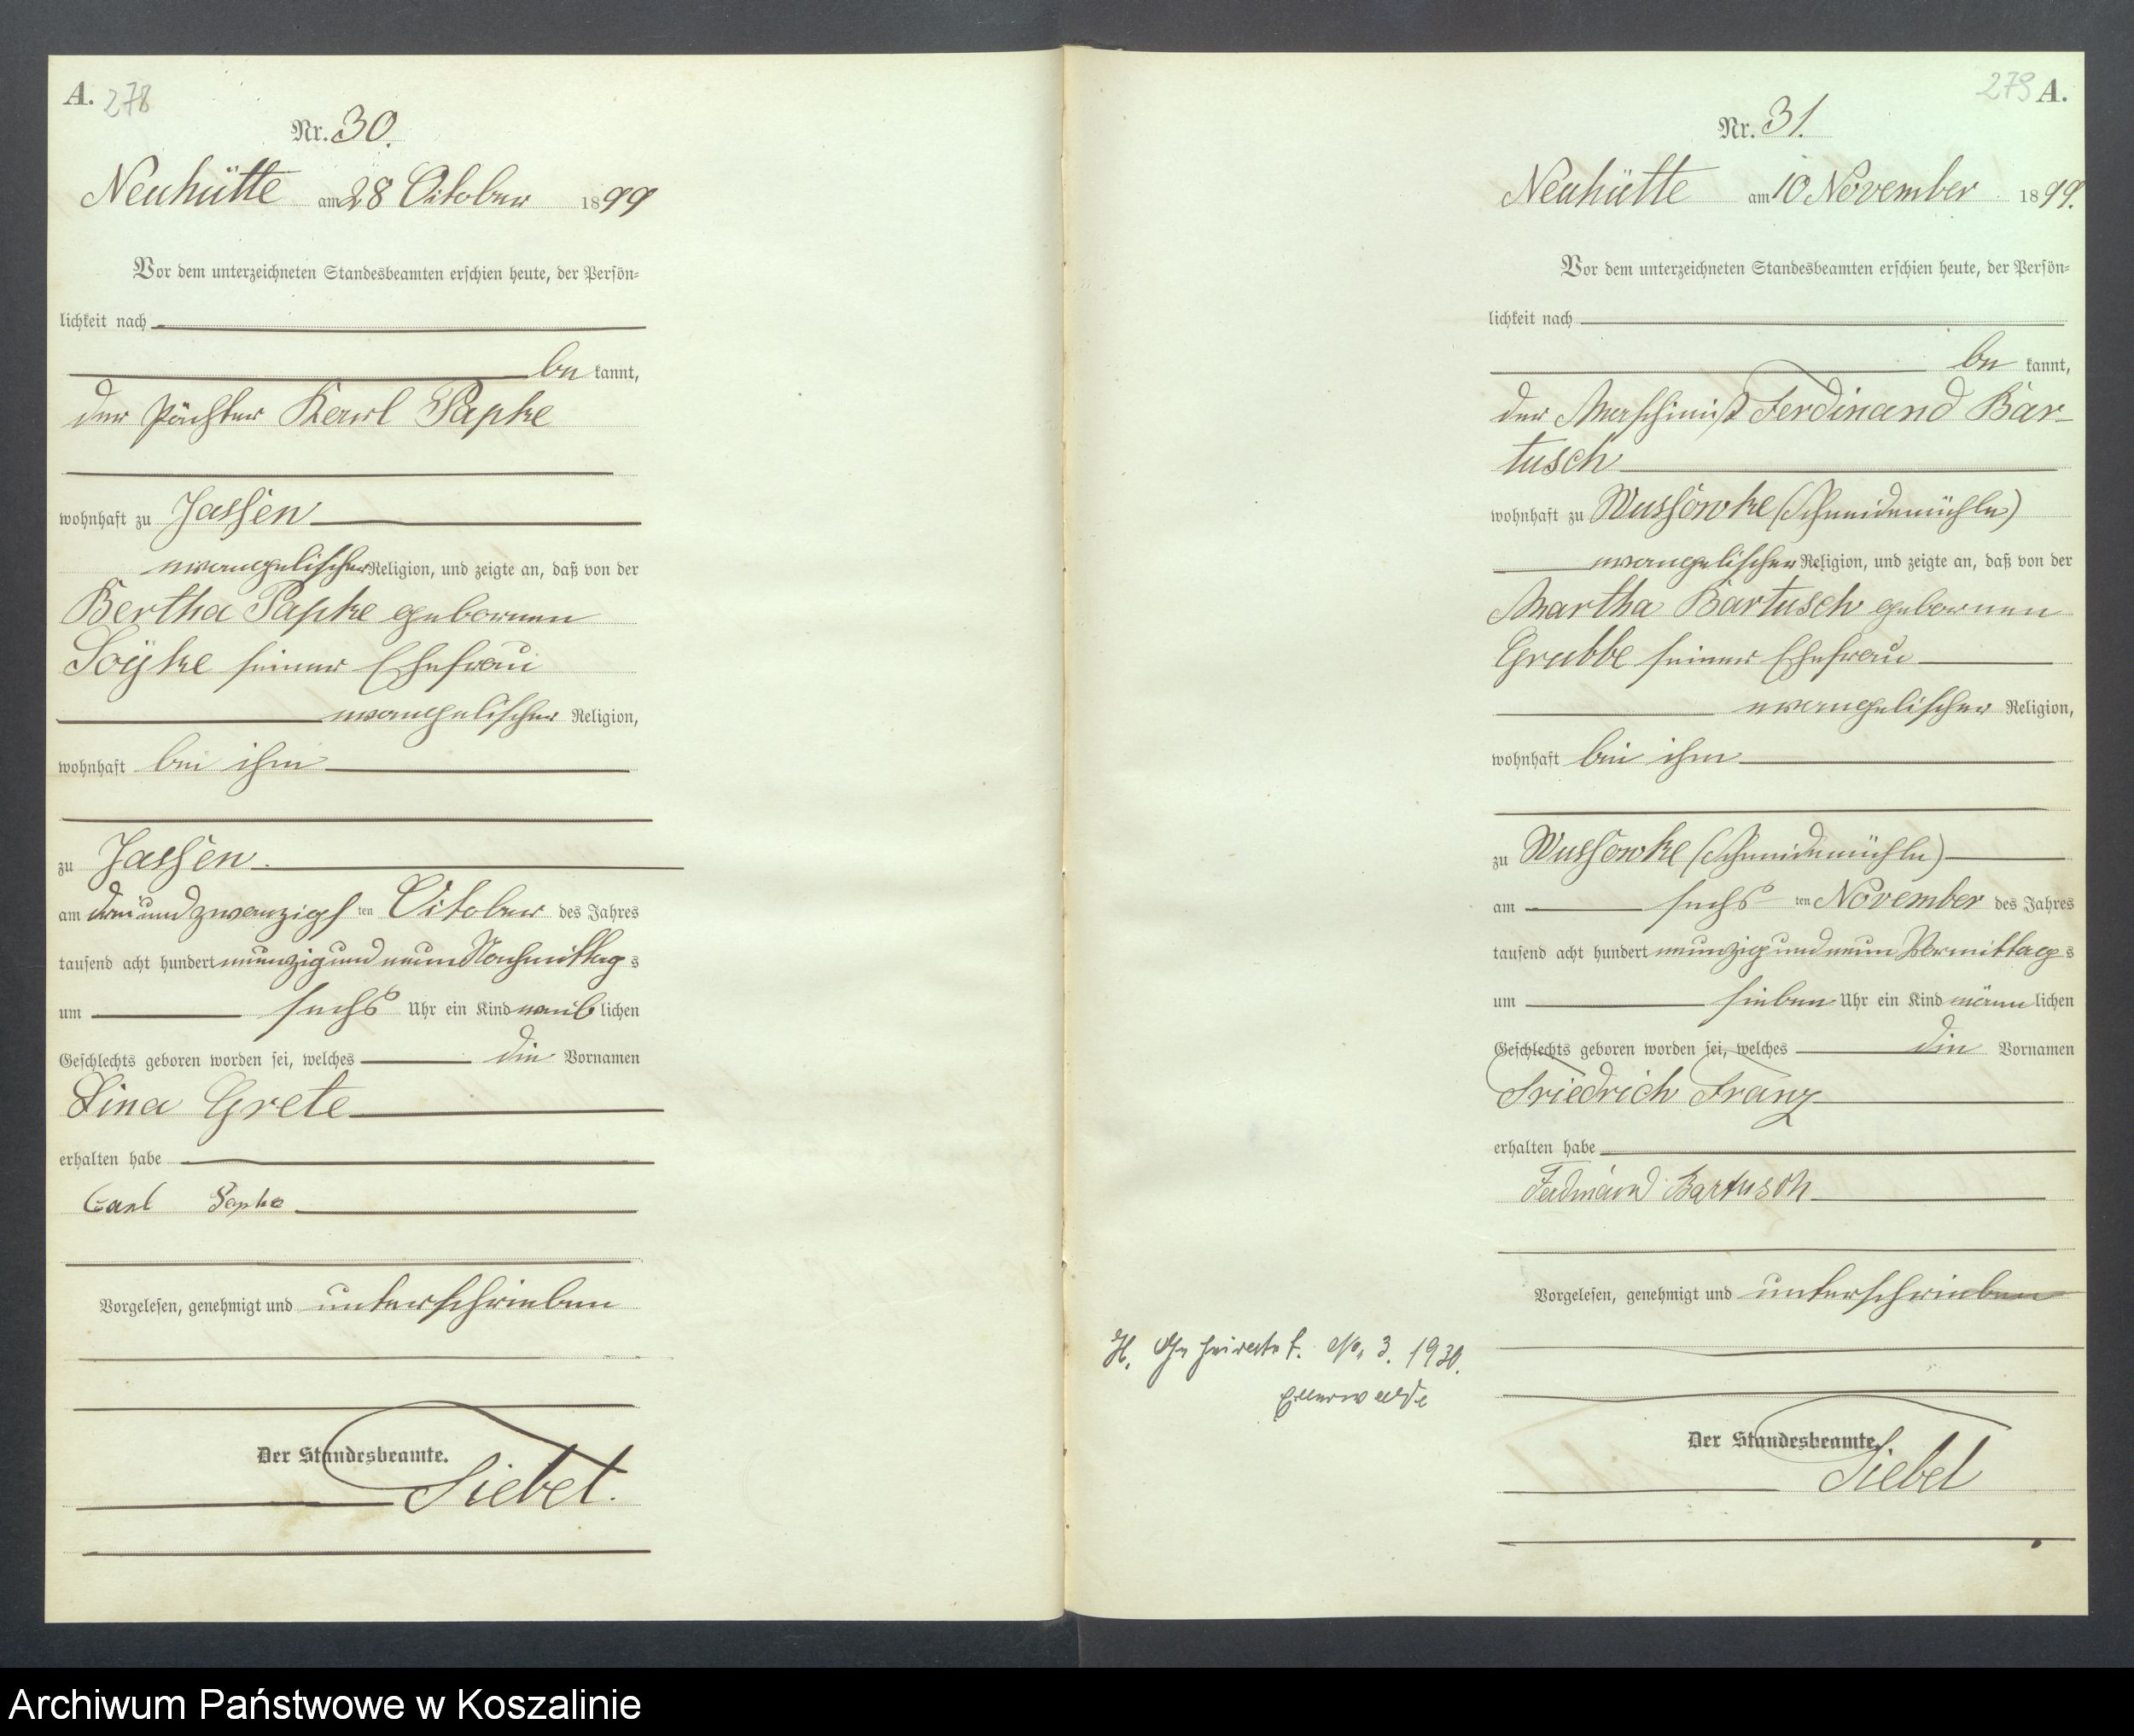 A. 278
Nr. 30.
Neuhütte am 28 October 1899
Vor dem unterzeichneten Standesbeamten erschien heute, der Persön=
lichkeit nach
be kannt,
der Pächter Karl Papke
wohnhaft zu Jassen
evangelischer Religion, und zeigte an, daß von der
Bertha Papke geborenen
Soyke seiner Ehefrau
evangelischer Religion,
wohnhaft bei ihm
zu Jassen.
am dreiundzwanzigs ten October des Jahres
tausend acht hundert neunzig und neun Nachmittag s
um sechs Uhr ein Kind weib lichen
Geschlechts geboren worden sei, welches die Vornamen
Lina Grete
erhalten habe
Carl Papke
Vorgelesen, genehmigt und unterschrieben
Der Standesbeamte.
Siebel.
279 A.
Nr. 31.
Neuhütte am 10 November 1899.
Vor dem unterzeichneten Standesbeamten erschien heute, der Persön=
lichkeit nach
be kannt,
der Maschinist Ferdinand Bar-
tusch
wohnhaft zu Wussowke (Schneidemühle)
evangelischer Religion, und zeigte an, daß von der
Martha Bartusch geborenen
Grubbe seiner Ehefrau
evangelischer Religion,
wohnhaft bei ihm
zu Wussowke (Schneidemühle)
am sechs ten November des Jahres
tausend acht hundert neunzig und neun Vormittag s
um sieben Uhr ein Kind männ lichen
Geschlechts geboren worden sei, welches die Vornamen
Friedrich Franz
erhalten habe
Ferdinand Bartusch
Vorgelesen, genehmigt und unterschrieben
H. Geheiratet. No. 3. 1930.
Ellerwalde
Der Standesbeamte.
Siebel
Archiwum Państwowe w Koszalinie